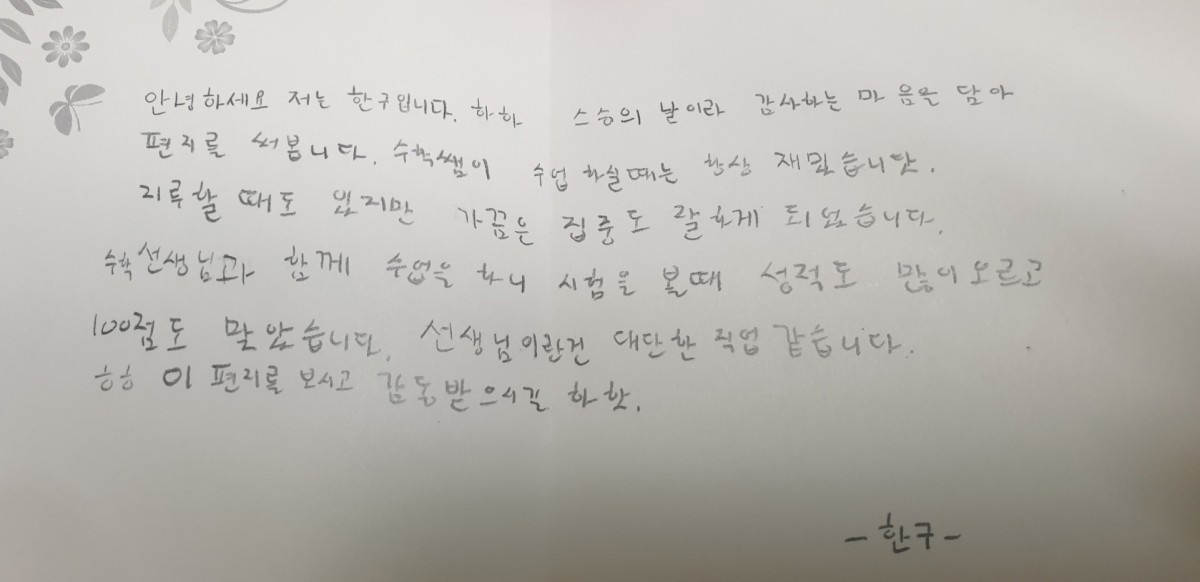 안녕하세요 저는 한구입니다. 하하 스승의 날이라 감사하는 마음을 담아
편지를 써봅니다. 수학쌤이 수업 하실때는 항상 재밌습니닷.
지루할 때도 있지만 가끔은 집중도 잘하게 되었습니다.
수학 선생님과 함께 수업을 하니 시험을 볼때 성적도 많이 오르고
100점도 맞았습니다. 선생님이란건 대단한 직업 같습니다.
하하 이 편지를 보시고 감동받으시길 하핫.
- 한구 -